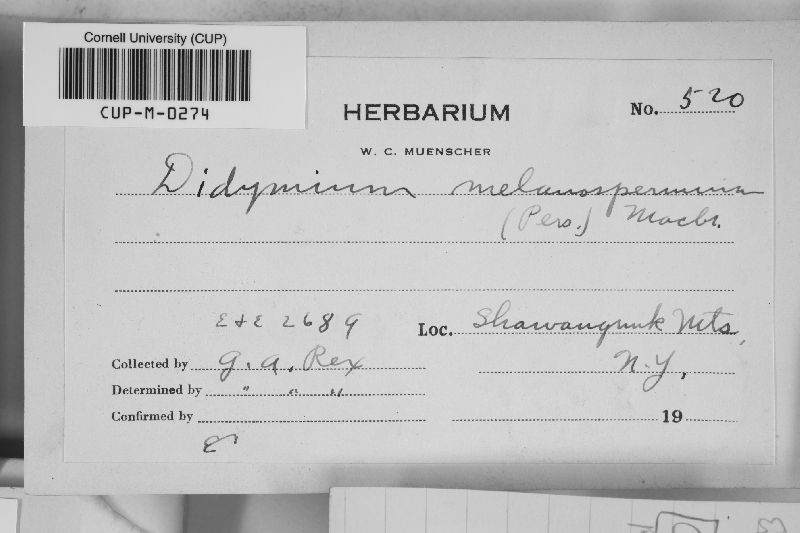 Cornell University (CUP)
CUP-M-0274
HERBARIUM
No. 520
W. C. MUENSCHER
Didymium melanospermum
(Pers.) Macbr.
E & E 2689
Loc. Shawangunk Mts,
N.Y,
Collected by G. A. Rex
Determined by " " "
Confirmed by
19